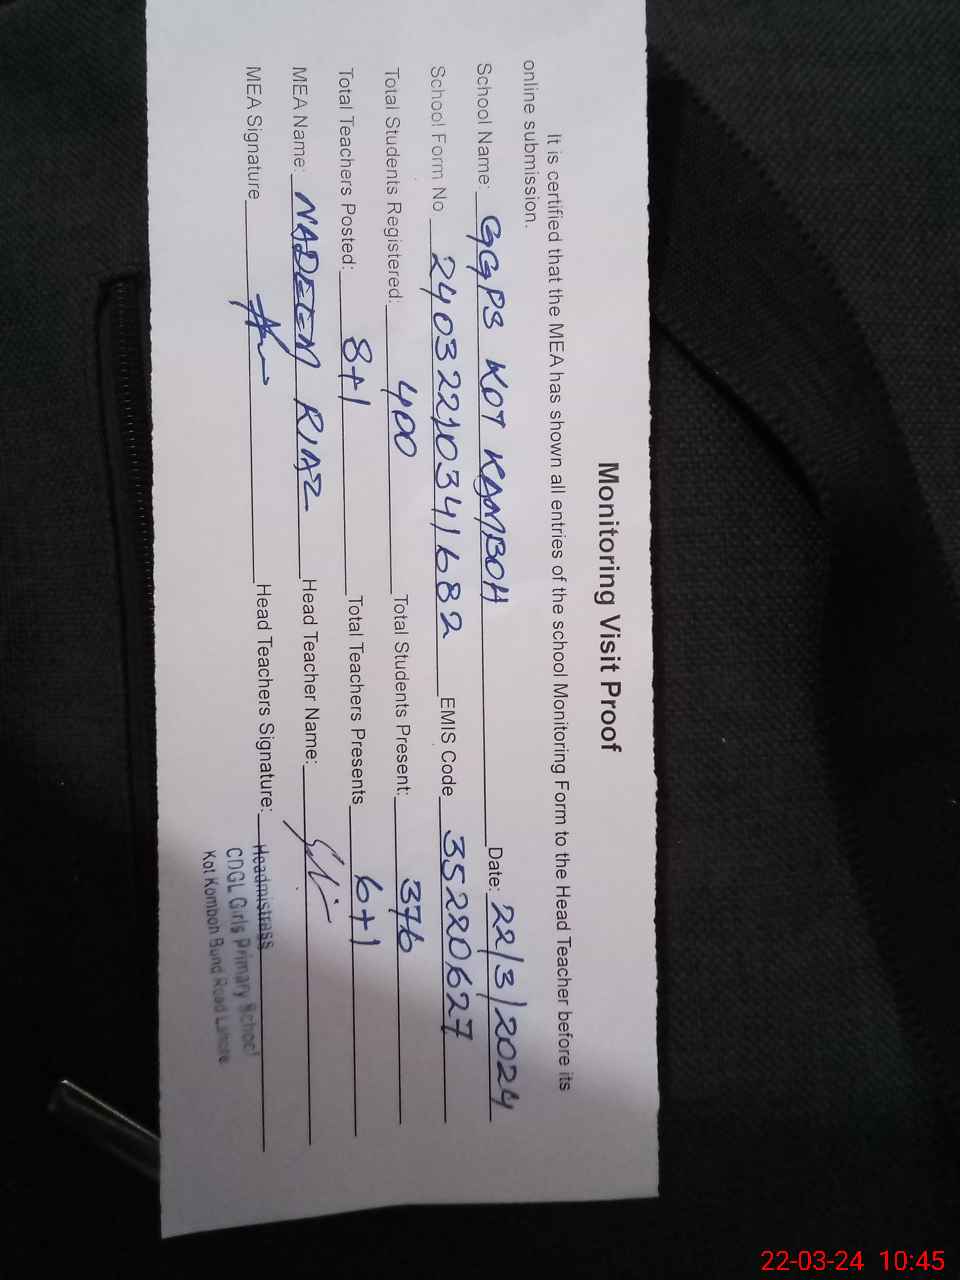 Monitoring Visit Proof
It is certified that the MEA has shown all entries of the school Monitoring Form to the Head Teacher before its
online submission.
School Name: GGPS KOT KAMBOH Date: 22/3/2024
School Form No 24032210341682 EMIS Code 35220627
Total Students Registered: 400 Total Students Present: 376
Total Teachers Posted: 8+1 Total Teachers Presents 6+1
MEA Name: NADEEM RIAZ Head Teacher Name:
MEA Signature Head Teachers Signature:
Headmistrass
CDGL Girls Primary School
Kot Kombon Bund Road Lahore
22-03-24 10:45